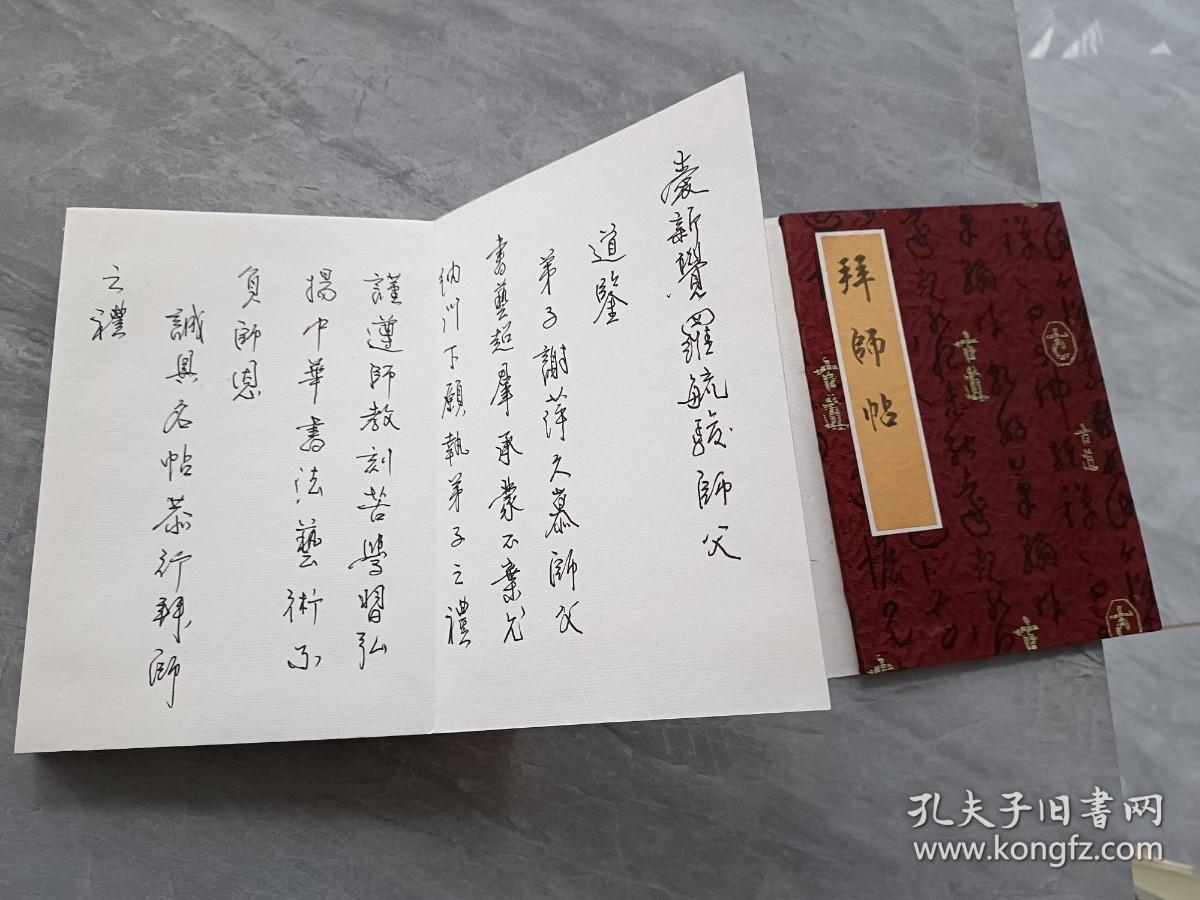 拜師帖
愛新覺羅毓駿師父
道鑒
弟子謝萍久慕師父
書藝超羣承蒙不棄允
納門下願執弟子之禮
謹遵師教刻苦學習弘
揚中華書法藝術不
負師恩
誠具名帖恭行拜師
之禮
古道
古道
古道
孔夫子旧书网
www.kongfz.com